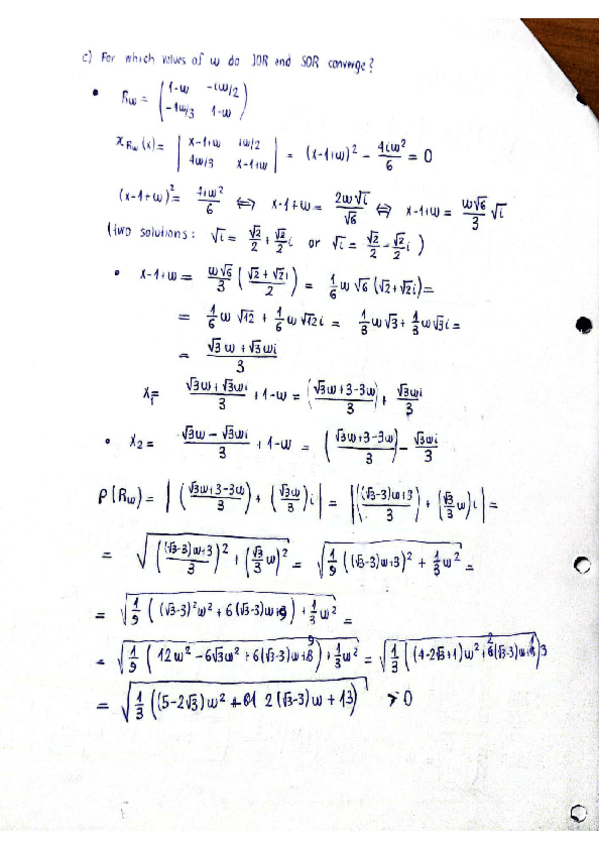 c) For which values of w do JOR and SOR converge?
• Rw = (1-w -iw/2
-4w/3 1-w)
χRw(x) = |x-1+w iw/2
4w/3 x-1+w| = (x-1+w)² - 4iw²/6 = 0
(x-1+w)² = 4iw²/6 ⇔ x-1+w = 2w√i/√6 ⇔ x-1+w = w√6/3 √i
(two solutions: √i = √2/2 + √2/2 i or √i = √2/2 - √2/2 i)
• x-1+w = w√6/3 (√2+√2i/2) = 1/6 w√6(√2+√2i) =
= 1/6 w√12 + 1/6 w√12i = 1/3 w√3 + 1/3 w√3i =
= √3w+√3wi/3
x₁ = √3w+√3wi/3 + 1-w = (√3w+3-3w/3) + √3wi/3
• x₂ = √3w-√3wi/3 + 1-w = (√3w+3-3w/3) - √3wi/3
ρ(Rw) = |(√3w+3-3w/3) + (√3w/3)i| = |((√3-3)w+3/3) + (√3/3 w)i| =
= √((√3-3)w+3/3)² + (√3/3 w)² = √1/9((√3-3)w+3)² + 1/3w² =
= √1/9((√3-3)²w² + 6(√3-3)w+9) + 1/3w² =
= √1/9(12w² - 6√3w² + 6(√3-3)w+9) + 1/3w² = √1/3((4-2√3+1)w² + 2(√3-3)w+3
= √1/3((5-2√3)w² + 2(√3-3)w + 3) > 0